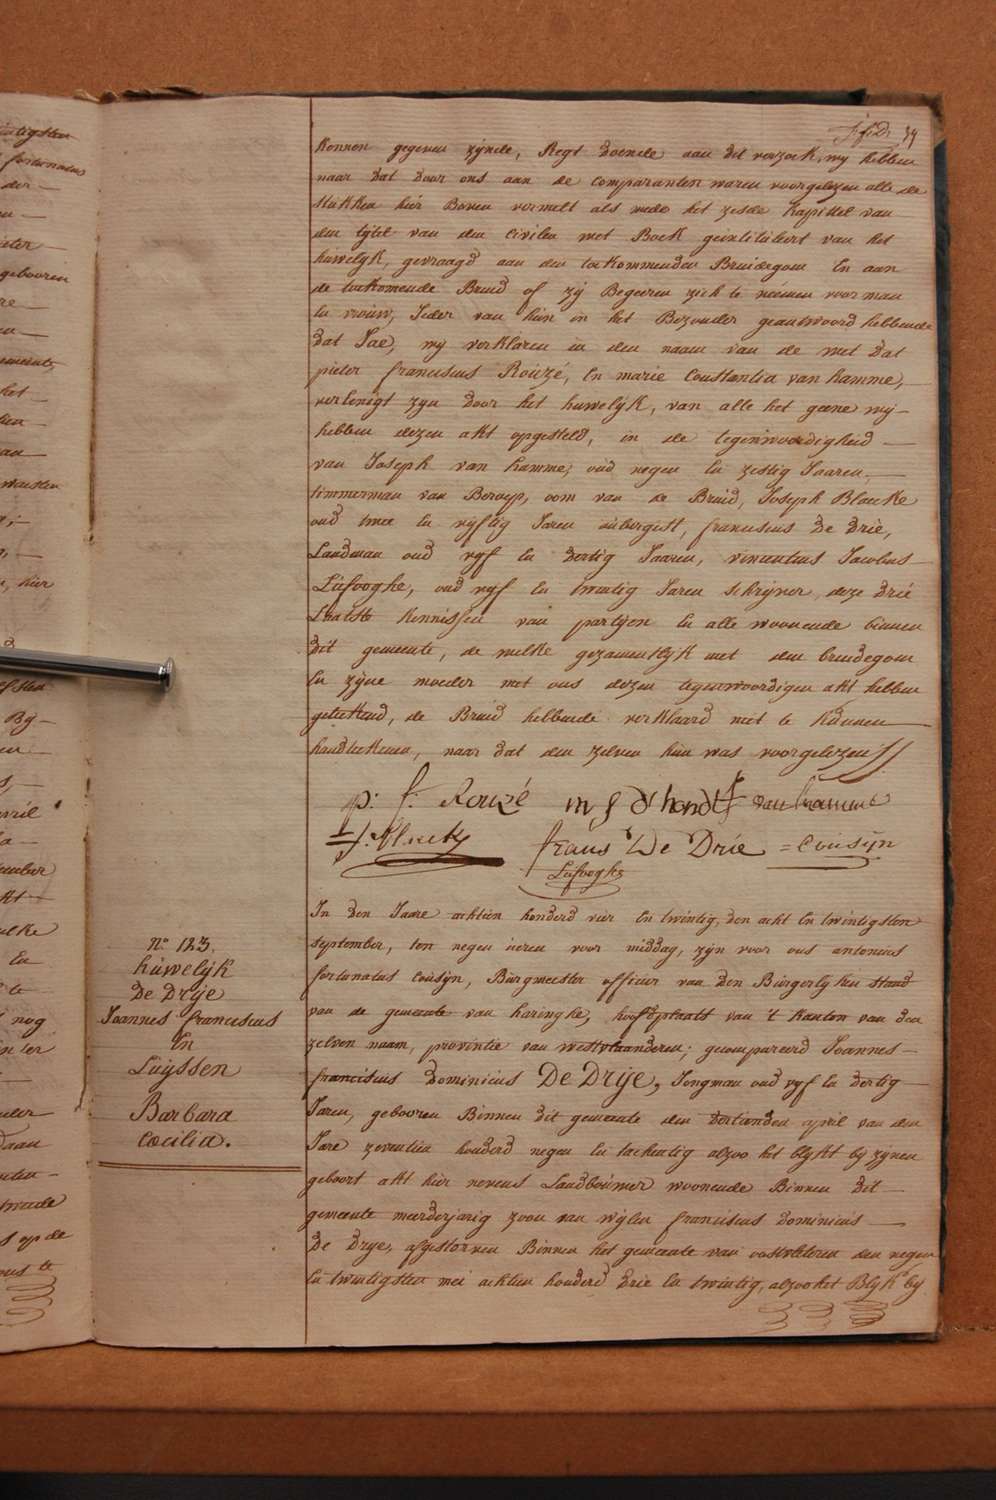 konnen gegeven zijnde, Regt doende aan dit verzoek, wij hebben
naar dat door ons aan de comparanten waren voorgelezen alle de
stukken hier Boven vermelt als mede het zesde kapittel van
den tijtel van den civilen wet Boek geintituleert van het
huwelijk, gevraagd aan den toekommenden Bruidegom En aan
de toekomende Bruid of zij Begeeren zich te néemen voor man
En vrouw, Ieder van hun in het Bezonder geantwoord hebbende
dat Jae, wij verklaren in den naam van de wet dat
pieter franciscus Roúzé, En marie Constantia van hamme,
verEenigt zyn door het huwelijk, van alle het geene wij
hebben dezen akt opgesteld, in de tegenwoordigheid
van Joseph van hamme, oúd negen En zestig Jaaren,
timmerman van Beroep, oom van de Bruid, Joseph Blaeke
oud twee En vyftig Jaren aúbergist, franciscus De Drie,
Landman oud vyf En dertig Jaaren, vincentius Jacobus
Lafooghe, oud vyf En twintig Jaren schrijver, deze drié
Laatste kennissen van partijen En alle woonende binnen
dit gemeente, de welke gezamentlijk met den bruidegom
En zijne moeder met ons dezen tegenwoordigen akt hebben
geteekend, de Bruid hebbende verklaard niet te kúnnen
handteekenen, naar dat den zelven hun was voorgelezen //
p: f. Rouzé m J d'hondt J van hamme
J. Blaeke frans De Drie = Coúsijn
Lafooghe
In den Jaare achtien honderd vier En twintig, den acht En twintigsten
september, ten negen úeren voor middag, zijn voor ons antonius
fortunatus Coúsijn, Búrgmeester officier van Den Búrgerlyken stand
van de gemeente van haringhe, hoofdplaats van 't kanton van den
zelven naam, provintie van westvlaanderen; gecompareerd Joannes
franciscus Dominicus De Drije, Jongman oud vyf En dertig
Jaren, gebooren Binnen dit gemeente den dertienden april van den
Jare zeventien honderd negen En tachentig alzoo het blykt bij zijnen
geboort akt hier nevens Landboúwer woonende Binnen dit
gemeente meerderjarig zoon van wijlen franciscus Dominicús
De Drije, afgestorven Binnen het gemeente van oostvleteren den negen
En twintigsten mei achtien honderd Drie En twintig, alzoo het Blykt bij
n° 123.
húwelijk
De Drije
Joannes franciscus
En
Luijssen
Barbara
Cœcilia.